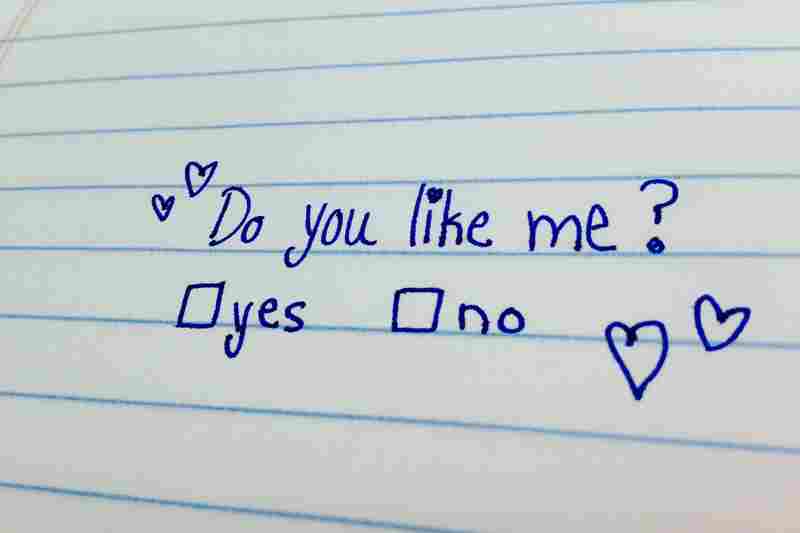 Do you like me?
☐ yes ☐ no